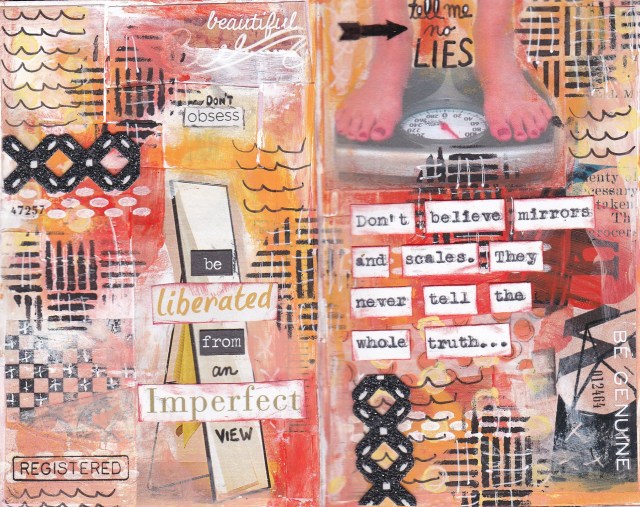 beautiful
DON'T
obsess
47257
be
liberated
from
an
Imperfect
VIEW
REGISTERED
tell me
no
LIES
Don't believe mirrors
and scales. They
never tell the
whole truth...
BE GENUINE